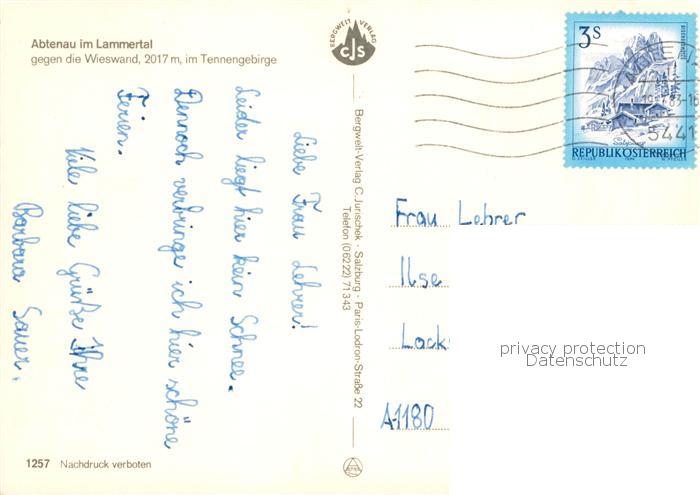 Abtenau im Lammertal
gegen die Wieswand, 2017 m, im Tennengebirge
Liebe Frau Lehrer!
Leider liegt hier kein Schnee.
Dennoch verbringe ich hier schöne
Ferien.
Viele liebe Grüße Ihre
Barbara Sauer.
1257 Nachdruck verboten
BERGWELT VERLAG
CJS
Bergwelt-Verlag C. Jurischek - Salzburg - Paris-Lodron-Straße 22
Telefon (0 62 22) 71 3 43
3 S
Salzburg
REPUBLIK ÖSTERREICH
5441
Frau Lehrer
Ilse
Lack
A-1180
privacy protection
Datenschutz